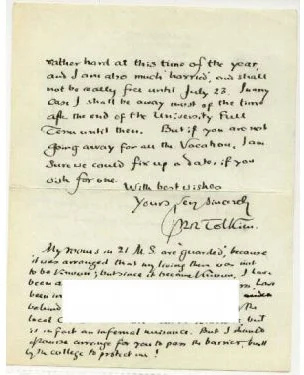 rather hard at this time of the year,
and I am also much 'harried', and shall
not be really free until July 23. In any
case I shall be away most of the time
after the end of the University Full
Term until then. But if you are not
going away for all the Vacation, I am
sure we could fix up a date, if you
wish for one.
With best wishes
Yours sincerely
Tolkien.
My rooms in 21 M.S. are 'guarded', because
it was arranged that my living there was not
to be known; but since it became known, I have
been
been in
behind
the local but
is in fact an infernal nuisance. But I should
of course arrange for you to pass the barrier, built
by the college to protect me!